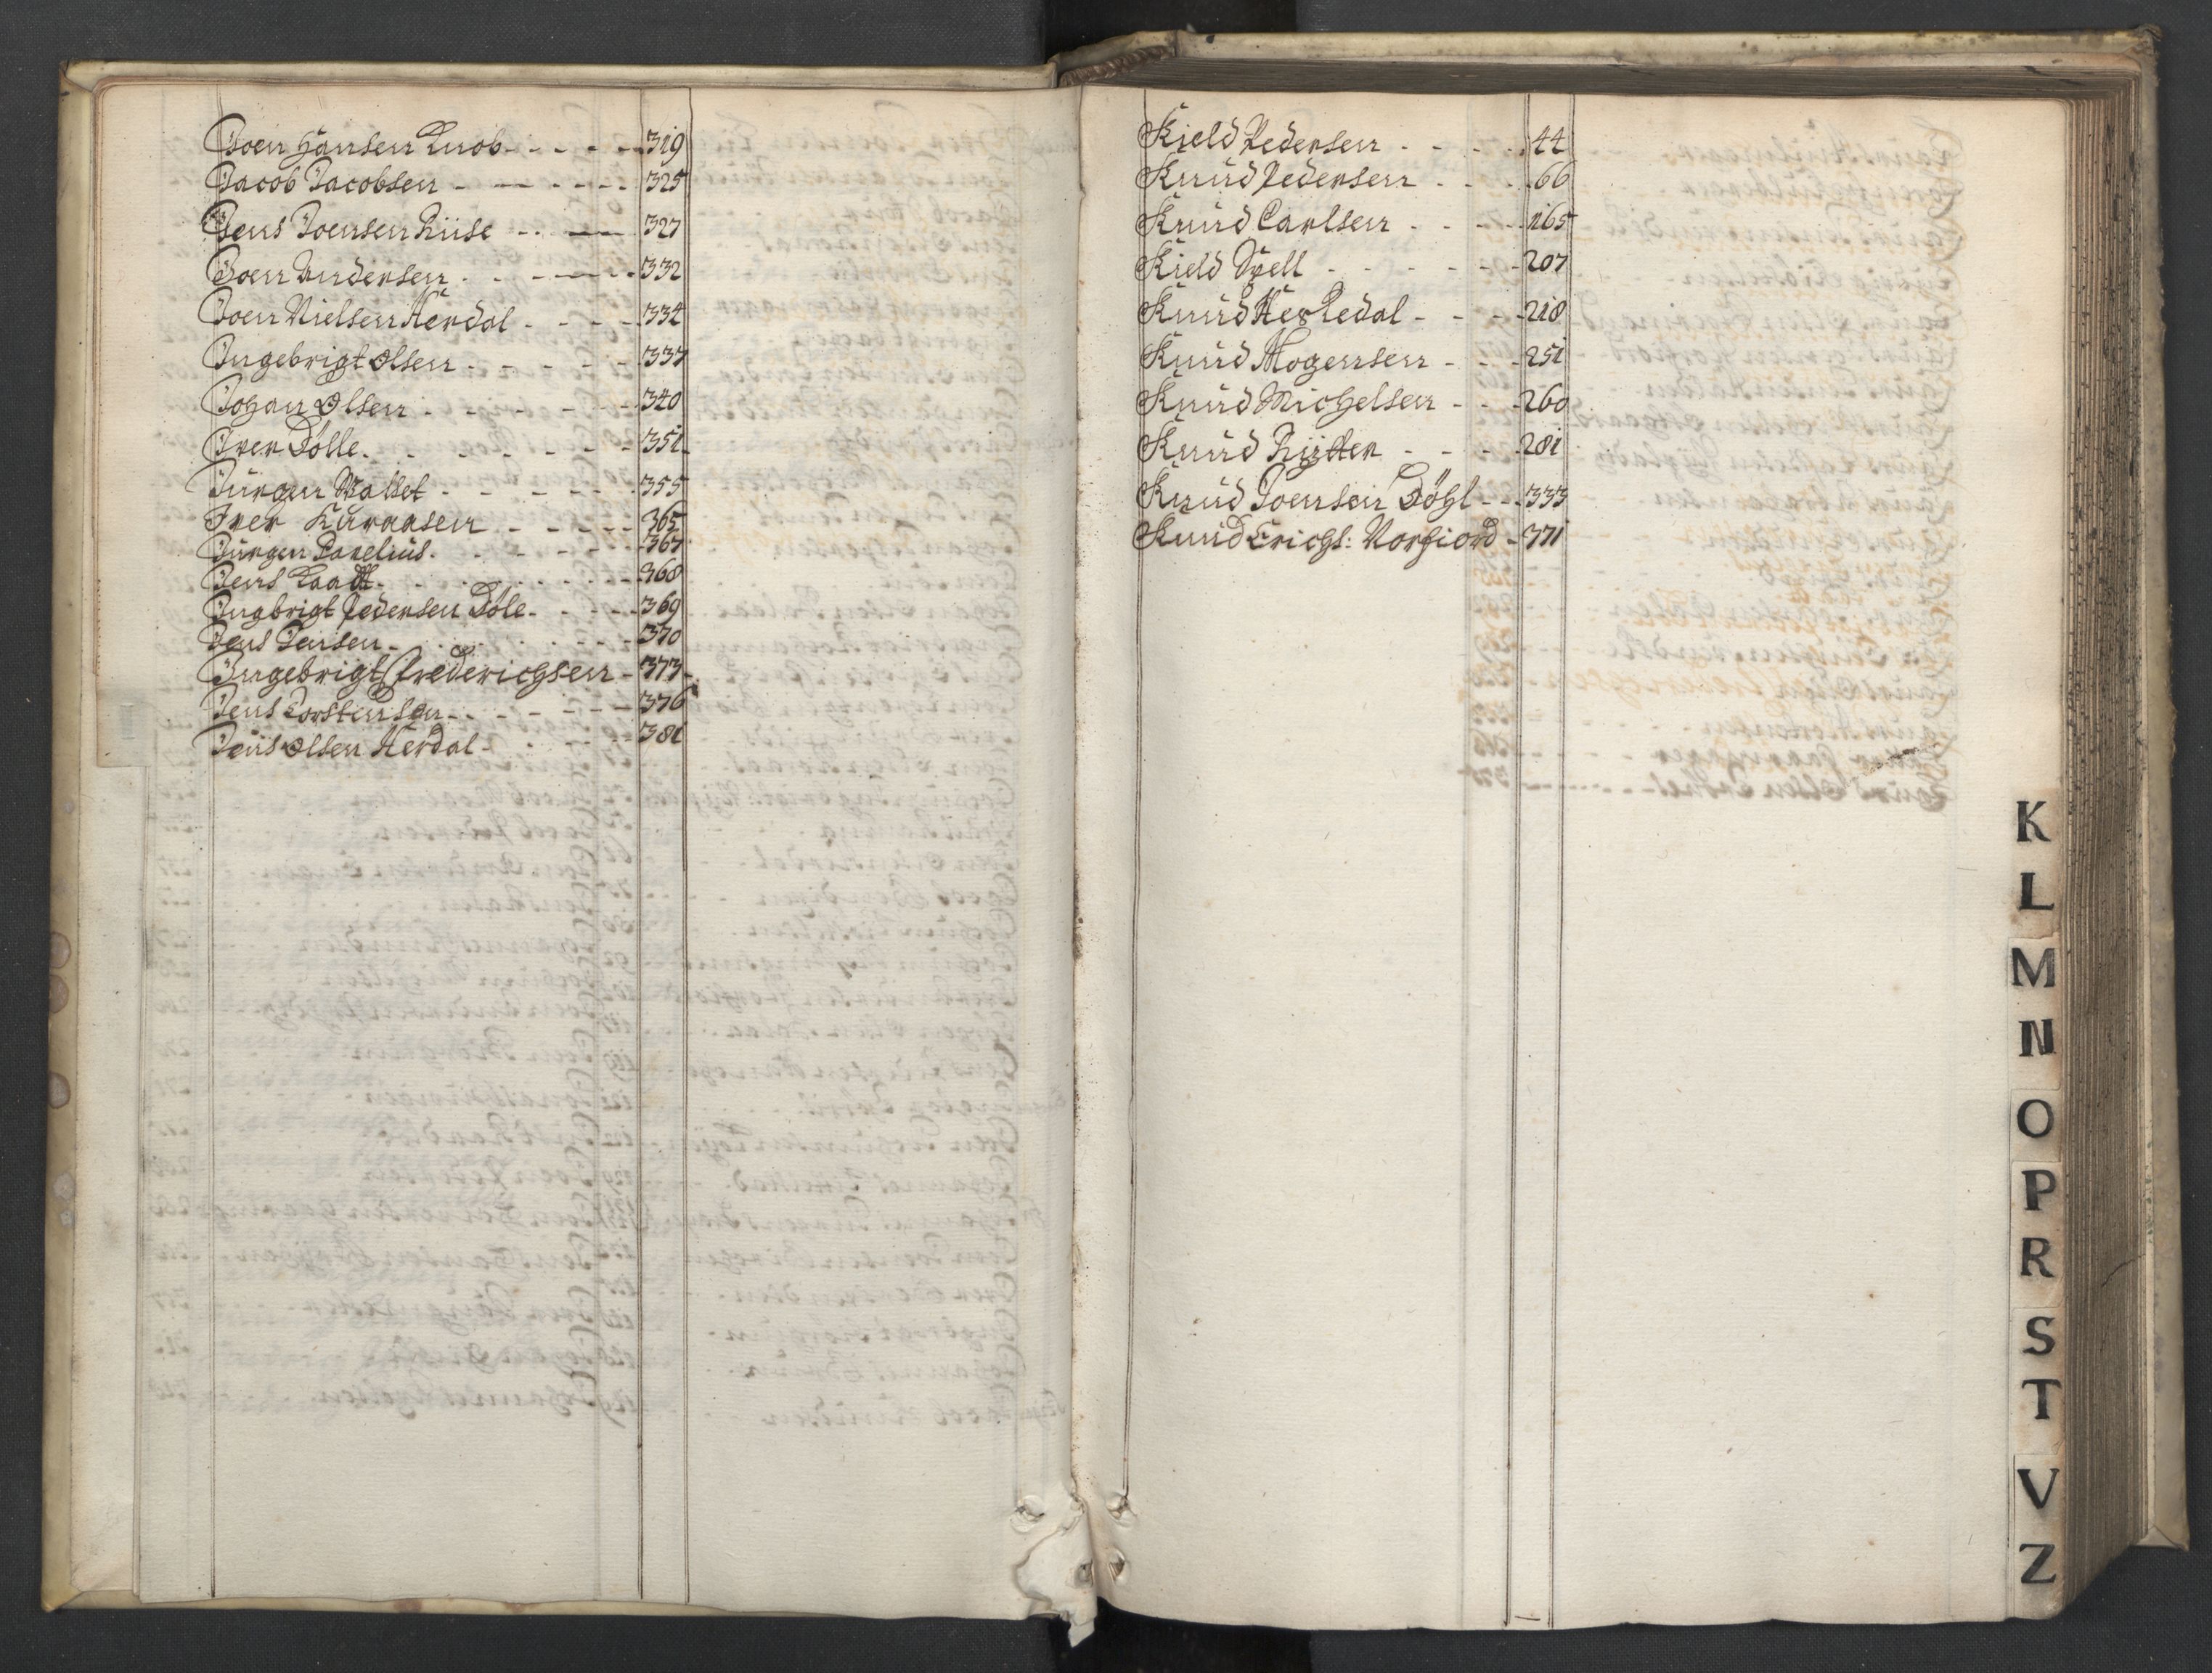 Joen Hansen Knob - - - - - 319
Jacob Jacobsen - - - - - - 325
Jens Joensen Riise - - - - 327
Joen Andersen - - - - - - 332
Joen Nielsen Herdal - - - - 334
Ingebrigt Olsen - - - - - 337
Johan Olsen - - - - - - 340
Iver Dölle - - - - - - 351
Jürgen Wallet - - - - - 355
Iver - - - - - 365
Jürgen Parelius - - - - - 367
Jens - - - - - - 368
Ingbrigt Pedersen Döle - - - - 369
Jens Jensen - - - - - - 370
Ingebrigt Frederichsen - 373
Jens Torstensen - - - - - 376
Jens Olsen Herdal - - - - 381
Kield Pedersen - - - - 44
Knüd Pedersen - - - - 66
Knüd Carlsen - - - - 165
Kield Spell - - - - - 207
Knüd Hestedal - - - - 218
Knüd Mogensen - - - 251
Knüd Michelsen - - - 260
Knüd Rütter - - - - 281
Knüd Joensen Döhl - - - 333
Knüd Erichs: Norfiord - 371
K
L
M
N
O
P
R
S
T
V
Z